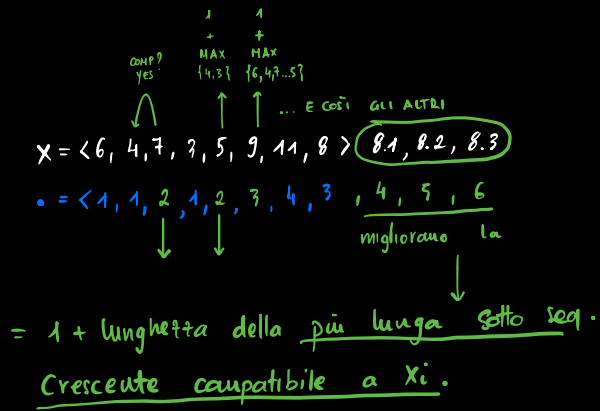 1 1
+ +
COMP? MAX MAX
YES {4,3} {6,4,7...5}
... E COSÌ GLI ALTRI
X = <6, 4, 7, 3, 5, 9, 11, 8> 8.1, 8.2, 8.3
• = <1, 1, 2, 1, 2, 3, 4, 3, 4, 5, 6
migliorano la
= 1 + lunghezza della più lunga sotto seq.
crescente compatibile a xi.